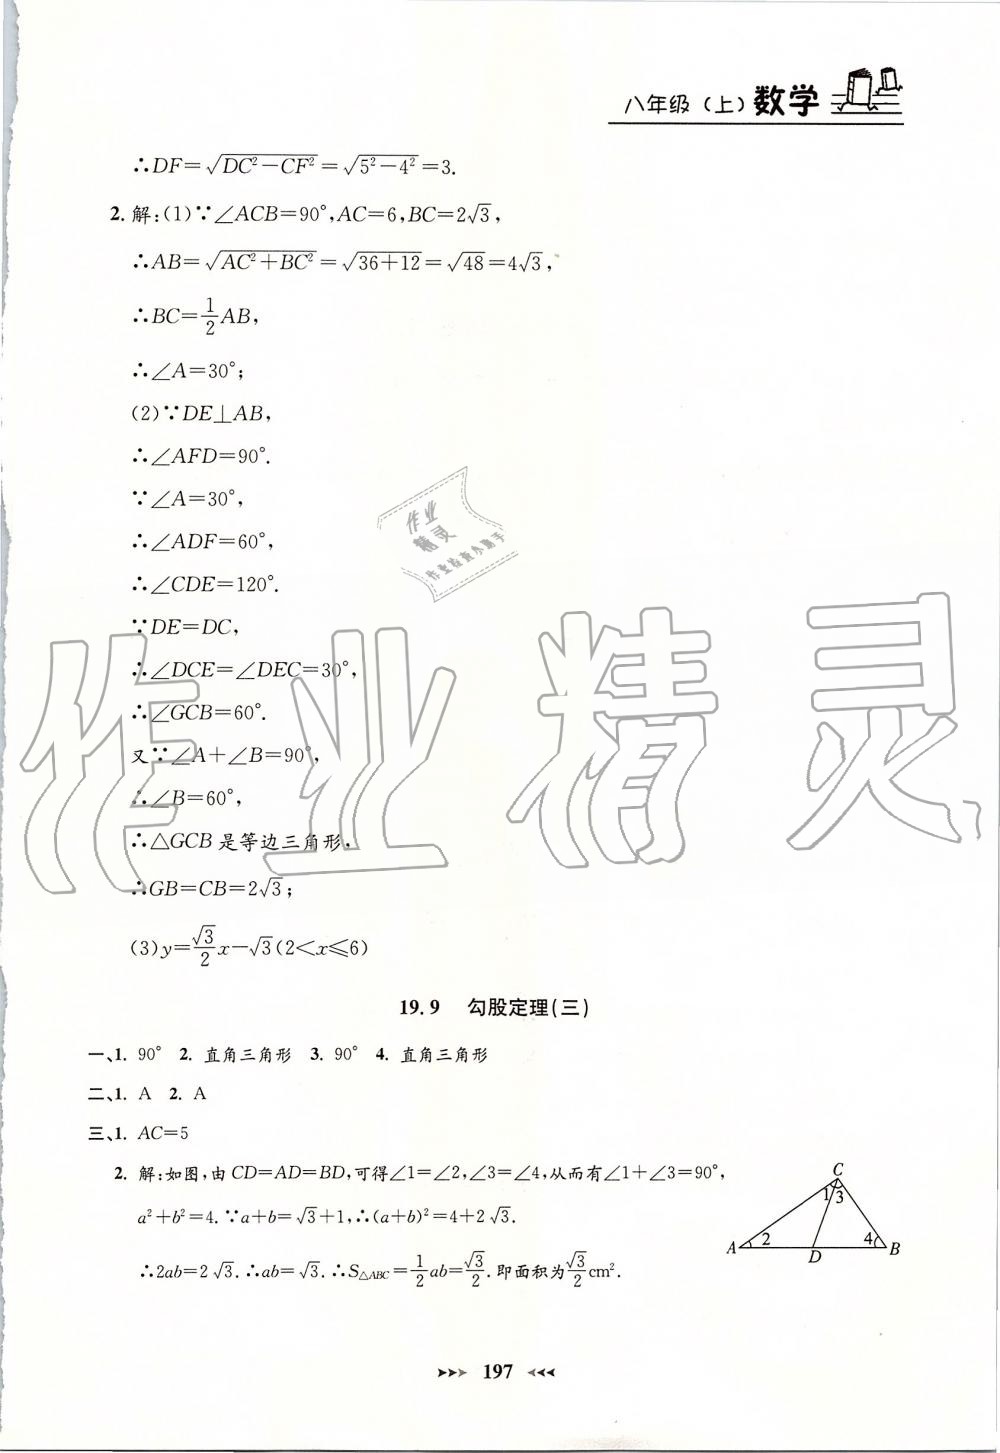 八年级（上）数学
∴DF=√(DC²−CF²)=√(5²−4²)=3.
2. 解:(1)∵∠ACB=90°,AC=6,BC=2√3,
∴AB=√(AC²+BC²)=√(36+12)=√48=4√3,
∴BC=1/2AB,
∴∠A=30°;
(2)∵DE⊥AB,
∴∠AFD=90°.
∵∠A=30°,
∴∠ADF=60°,
∴∠CDE=120°.
∵DE=DC,
∴∠DCE=∠DEC=30°,
∴∠GCB=60°.
又∵∠A+∠B=90°,
∴∠B=60°,
∴△GCB是等边三角形,
∴GB=CB=2√3;
(3)y=√3/2x−√3(2<x⩽6)
19.9 勾股定理(三)
一、1. 90° 2. 直角三角形 3. 90° 4. 直角三角形
二、1. A 2. A
三、1. AC=5
2. 解:如图,由CD=AD=BD,可得∠1=∠2,∠3=∠4,从而有∠1+∠3=90°,
a²+b²=4.∵a+b=√3+1,∴(a+b)²=4+2√3.
∴2ab=2√3.∴ab=√3.∴S△ABC=1/2ab=√3/2.即面积为√3/2cm².
C
1 3
A 2 4 B
D
197
作业
精灵
作业检查小助手
作业精灵